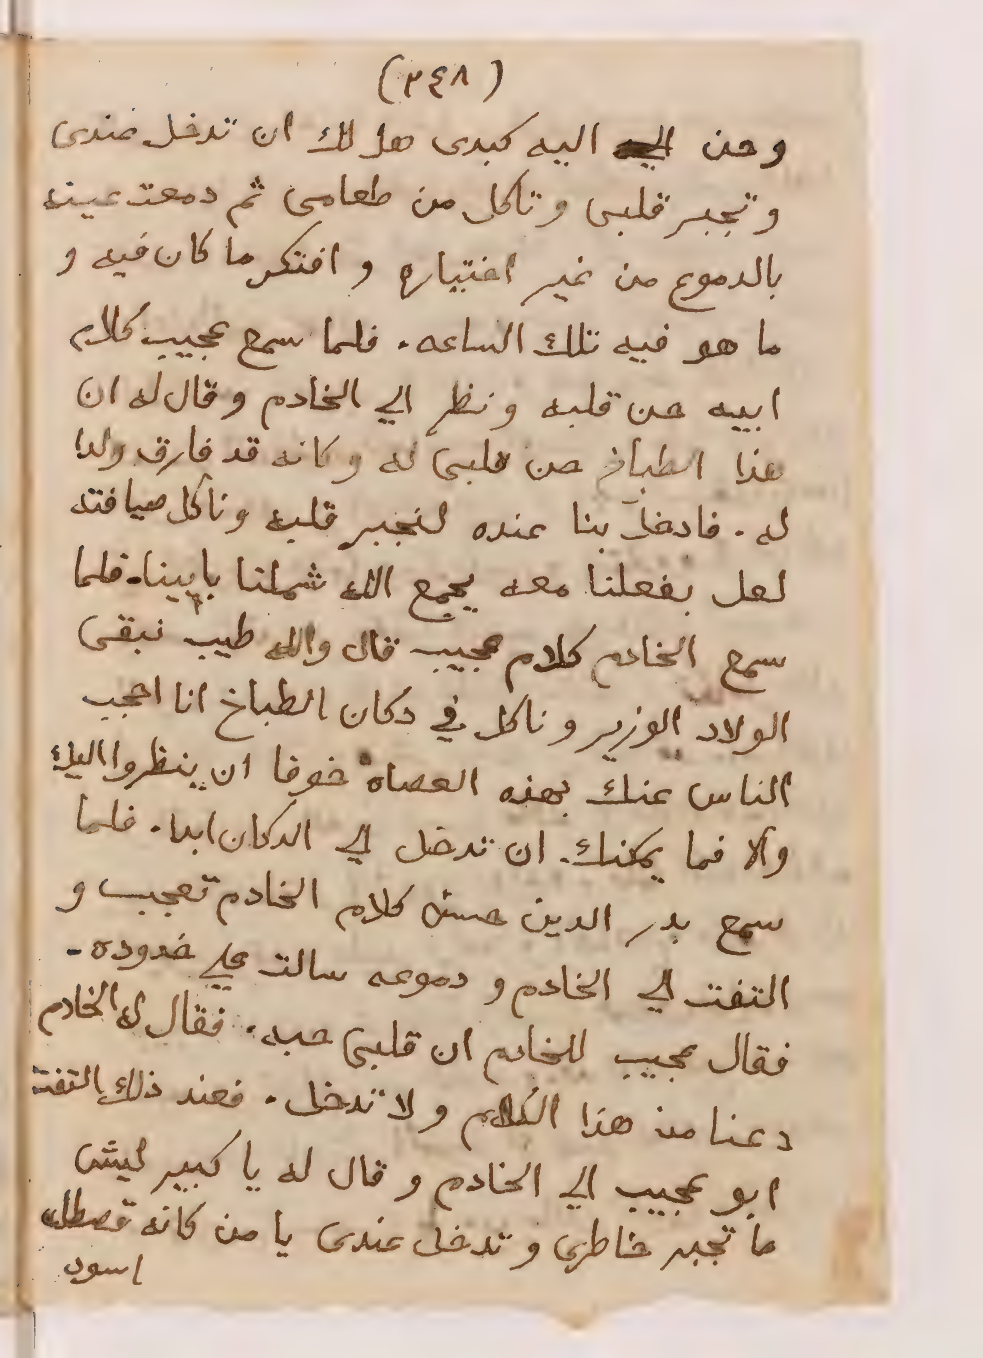 (٣٤٨)
وحن اليه كبدى هل لك ان تدخل عندى
وتجبر قلبى وتاكل من طعامى ثم دمعت عينه
بالدموع من غير اختياره و افتكر ما كان فيه و
ما هو فيه تلك الساعه. فلما سمع عجيب كلام
ابيه حن قلبه ونظر الي الخادم وقال له ان
هذا الطباخ حن قلبى له وكانه قد فارق ولدا
له. فادخل بنا عنده لنجبر قلبه وناكل ضيافته
لعل بفعلنا معه يجمع الله شملنا بابينا. فلما
سمع الخادم كلام عجيب قال والله طيب نبقى
الولاد الوزير وناكل في دكان الطباخ انا احجب
الناس عنك بهذه العصاه خوفا ان ينظروا اليك
والا فما يمكنك. ان تدخل الي الدكان ابدا. فلما
سمع بدر الدين حسن كلام الخادم تعجب و
التفت الي الخادم و دموعه سالت علي خدوده.
فقال عجيب للخادم ان قلبى حبه. فقال له الخادم
دعنا من هذا الكلام ولا تدخل. فعند ذلك التفت
ابو عجيب الي الخادم و قال له يا كبير ليش
ما تجبر خاطرى وتدخل عندى يا من كانه قصطله
اسود